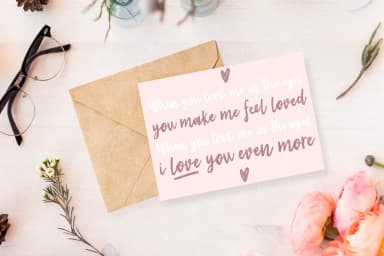 When you look me in the eyes
you make me feel loved
When you look me in the eyes
i love you even more